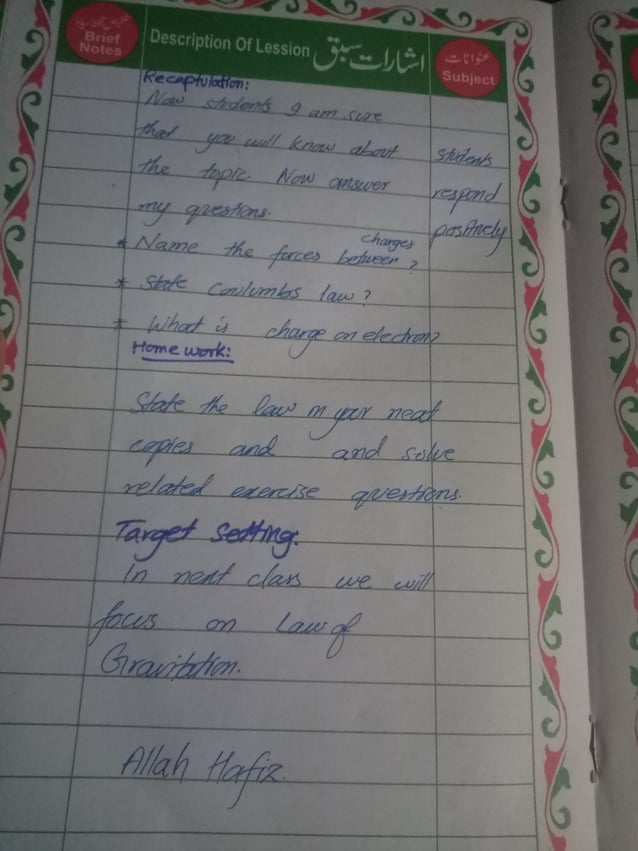 Brief Notes
Description Of Lession اشارات سبق
عنوانات
Subject
Recaptulation:
Now students I am sure
that you will know about
the topic. Now answer
my questions.
students
respond
positively
* Name the forces between charges?
* State Coulumbs law?
* What is charge on electron?
Home work:
State the law in your neat
copies and and solve
related exercise questions.
Target Setting.
In next class we will
focus on Law of
Gravitation.
Allah Hafiz.